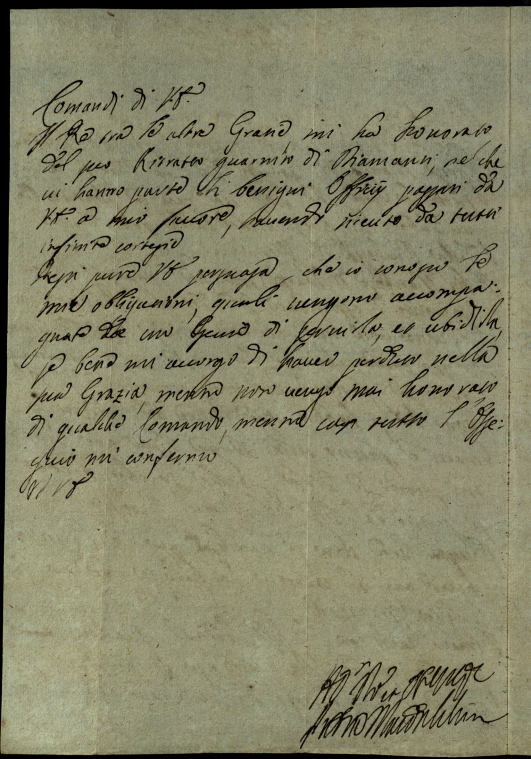 Comandi di VS.
Il Re tra le altre Grazie mi ha honorato
del suo Ritratto guarnito di Diamanti, so che
vi hanno parte li benigni Offizij passati da
VS. a mio favore, havendo riceuto da tutti
infinite cortesie
pure VS persuasa, che io conosco le
mie obligazioni, quali vengono accompa-
gnate da un di servirla, et ubidirla,
se bene mi accorgo di haver perduto nella
sua Grazia, mentre non vengo mai honorato
di qualche Comando, mentre con tutto l'Osse-
quio mi confermo
Di VS